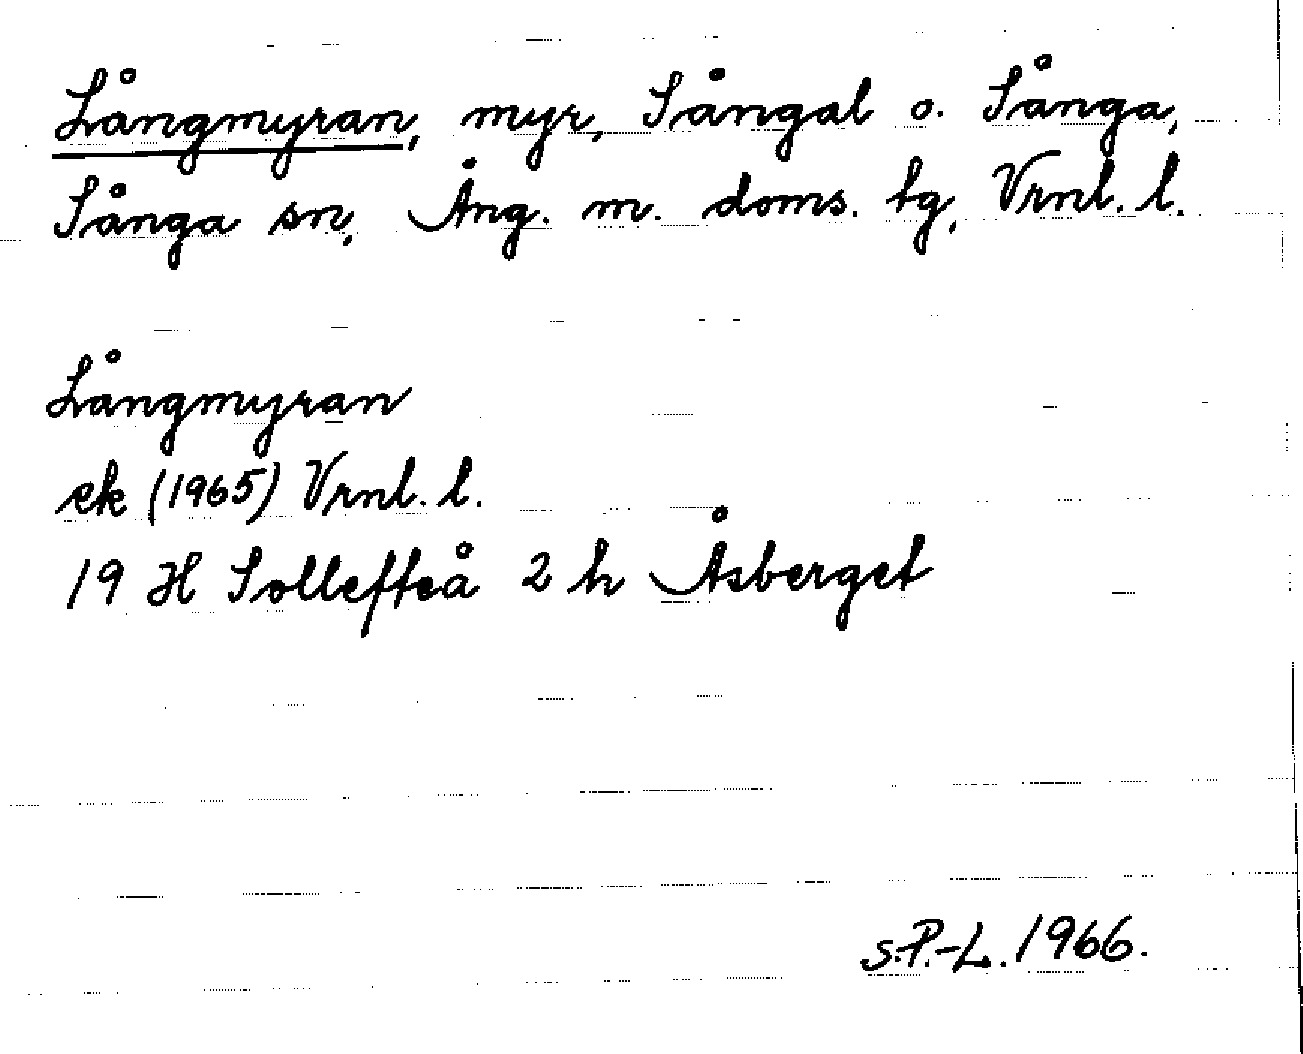 Långmyran, myr, Sångal o. Sånga,
Sånga sn, Ång. m. doms. tg, Vrnl. l.
Långmyran
ek (1965) Vrnl. l.
19 H Sollefteå 2 h Åsberget
S.P.-L. 1966.